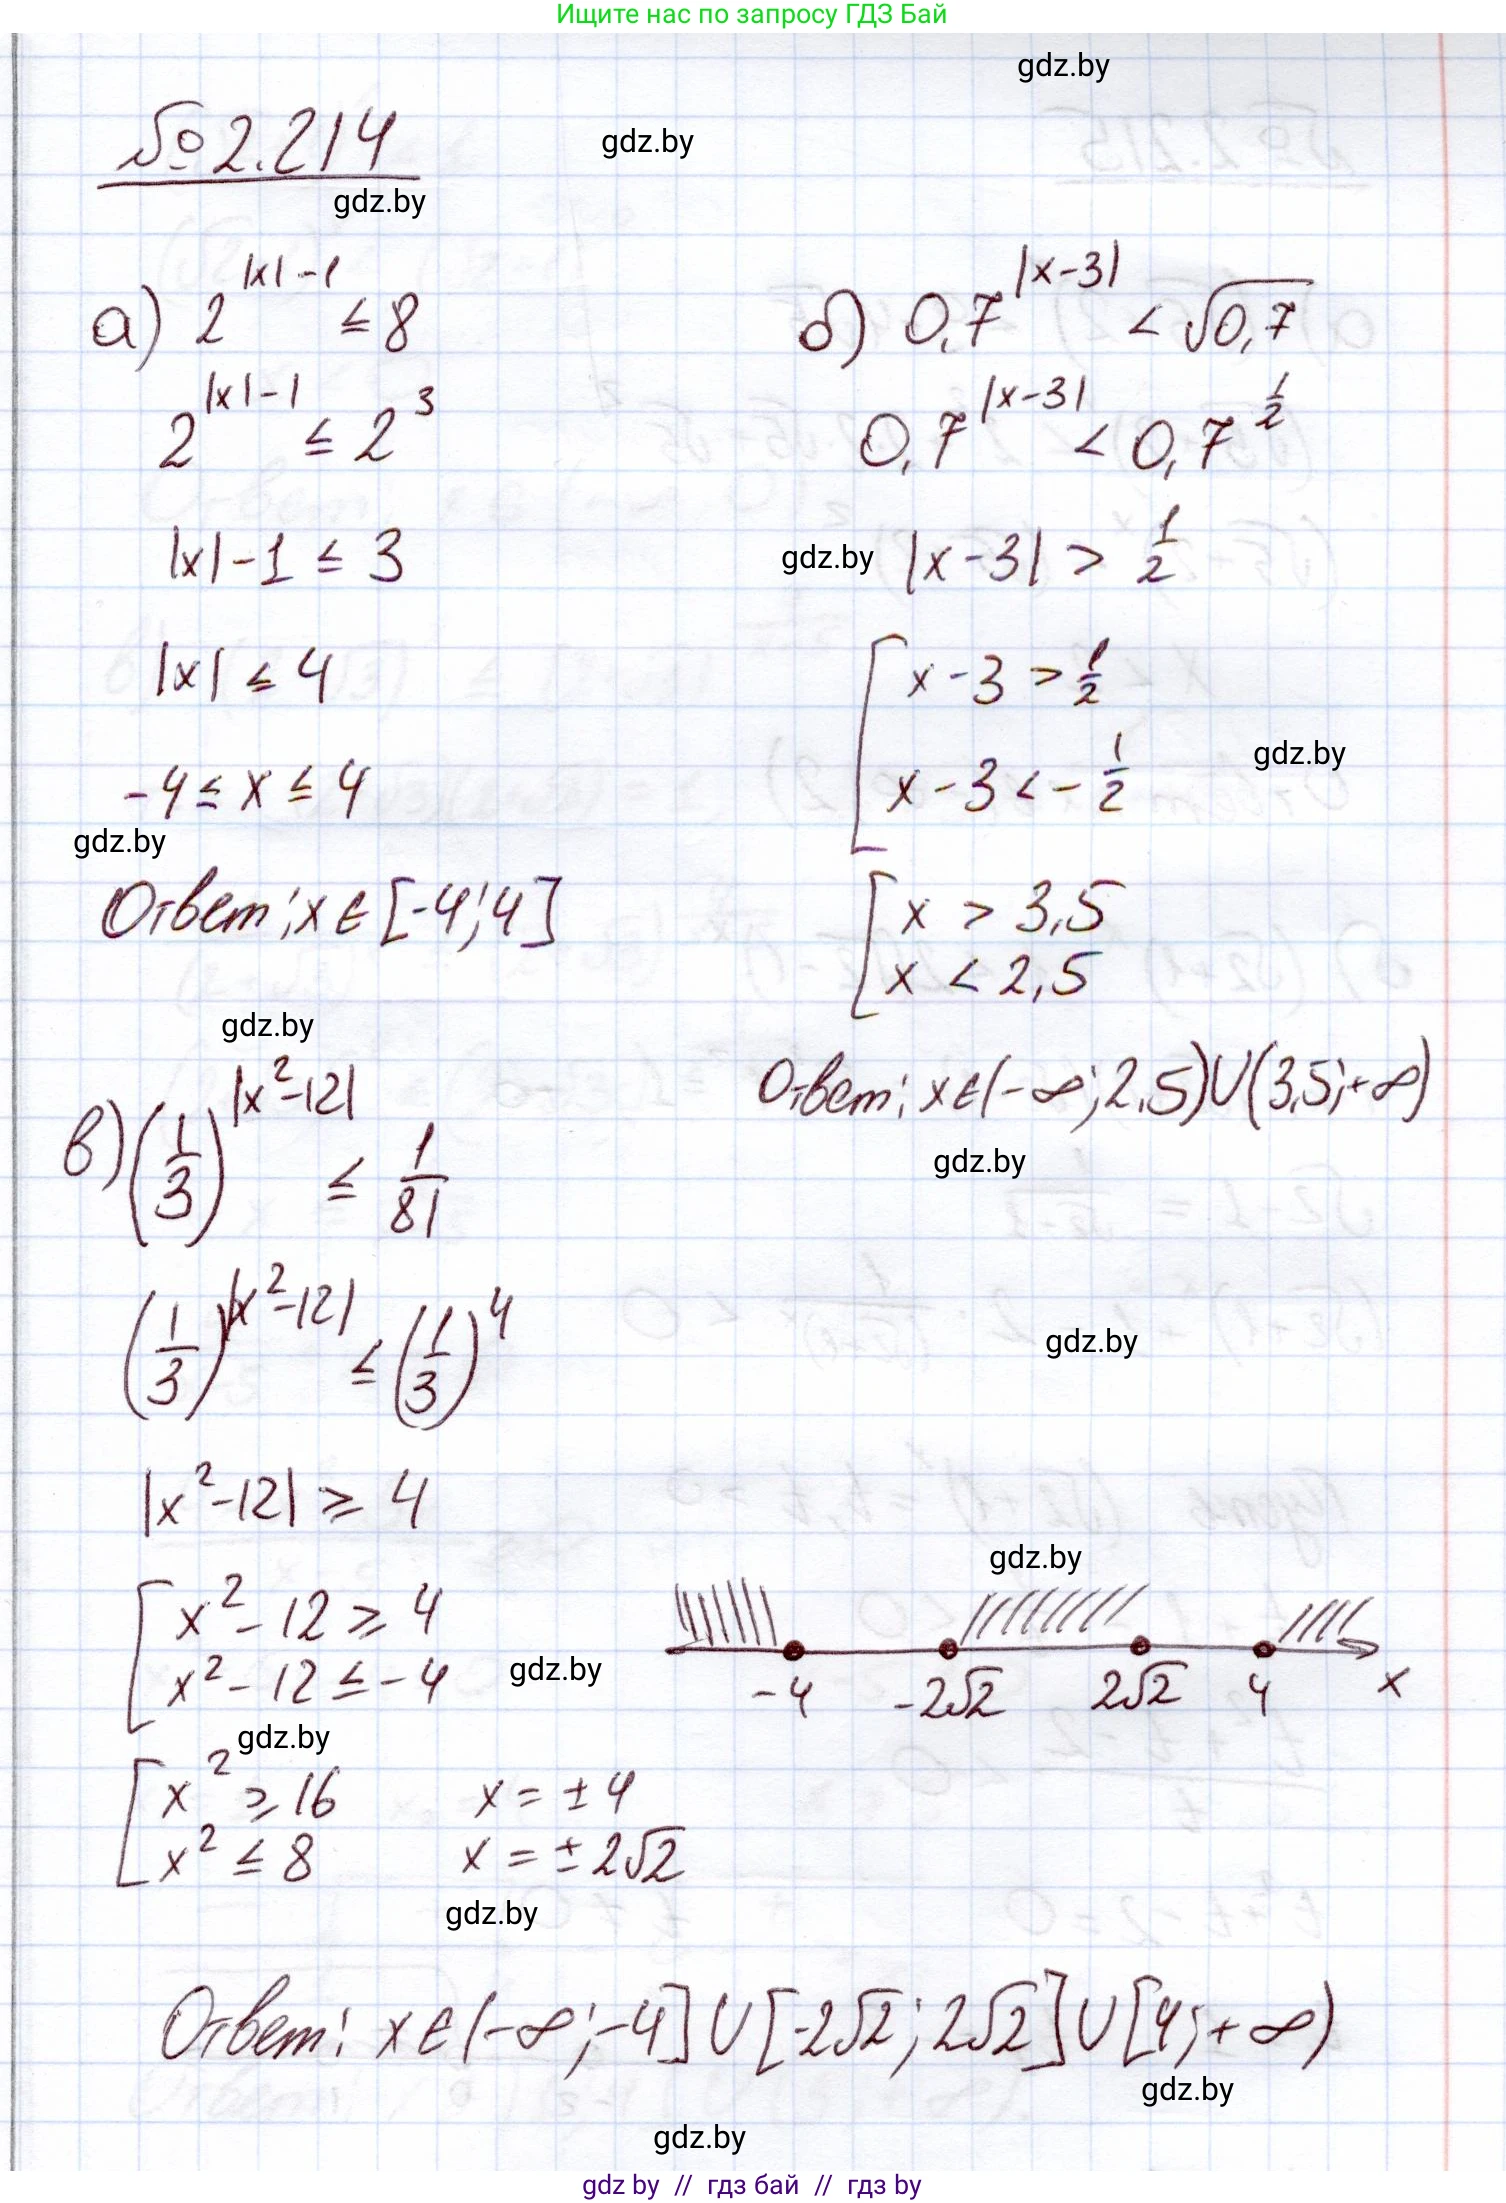 Ищите нас по запросу ГДЗ Бай
gdz.by
№2.214
gdz.by
gdz.by
а) 2^{|x|-1} ≤ 8
2^{|x|-1} ≤ 2^3
|x|-1 ≤ 3
|x| ≤ 4
-4 ≤ x ≤ 4
gdz.by
Ответ: x ∈ [-4; 4]
б) 0,7^{|x-3|} < √0,7
0,7^{|x-3|} < 0,7^{1/2}
gdz.by
|x-3| > 1/2
[ x-3 > 1/2
x-3 < -1/2
gdz.by
[ x > 3,5
x < 2,5
Ответ: x ∈ (-∞; 2,5) ∪ (3,5; +∞)
gdz.by
gdz.by
в) (1/3)^{|x²-12|} ≤ 1/81
(1/3)^{|x²-12|} ≤ (1/3)^4
gdz.by
|x²-12| ≥ 4
[ x²-12 ≥ 4
x²-12 ≤ -4
gdz.by
gdz.by
gdz.by
-4 -2√2 2√2 4 x
[ x² ≥ 16 x = ±4
x² ≤ 8 x = ±2√2
gdz.by
Ответ: x ∈ (-∞; -4] ∪ [-2√2; 2√2] ∪ [4; +∞)
gdz.by
gdz.by
gdz by // гдз бай // гдз by